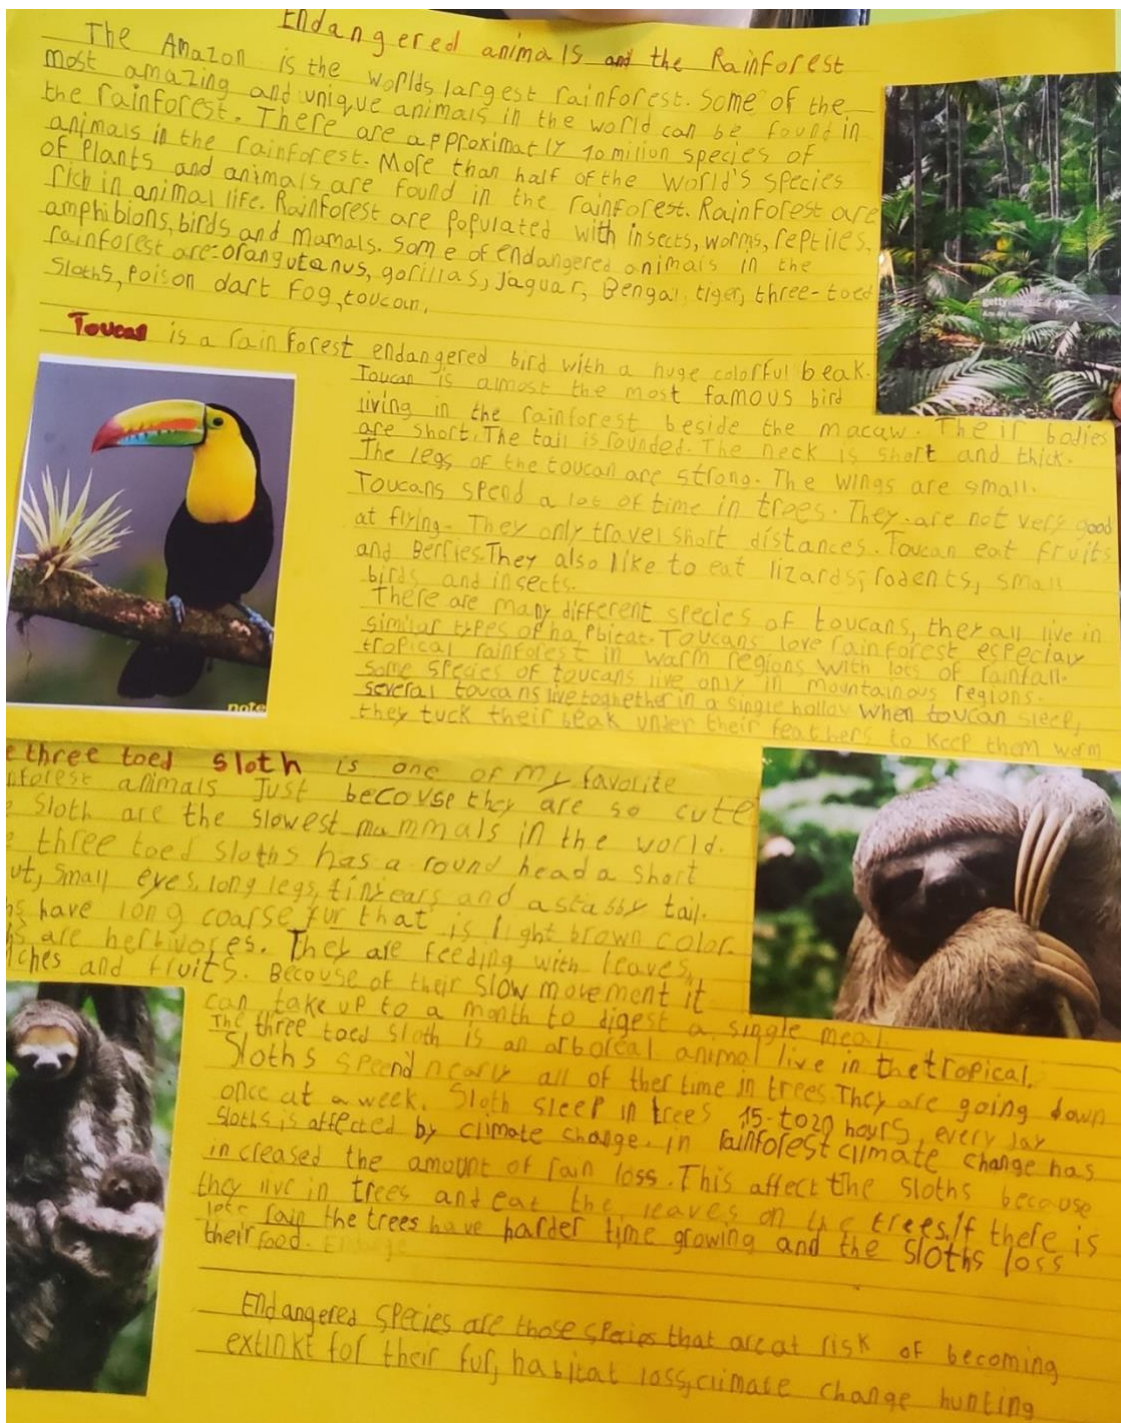 Endangered animals and the Rainforest
The Amazon is the worlds largest rainforest. Some of the
most amazing and unique animals in the world can be found in
the rainforest. There are approximatly 10 miliun species of
animals in the rainforest. More than half of the world's species
of Plants and animals are found in the rainforest. Rainforest are
rich in animal life. Rainforest are Populated with insects, worms, reptiles,
amphibions, birds and mamals. Some of endangered animals in the
rainforest are: orangutanus, gorillas, Jaguar, Bengal tiger, three-toed
Sloths, Poison dart Fog, toucan,
gettyimages
Toucan is a rainforest endangered bird with a huge colorful beak.
Toucan is almost the most famous bird
living in the rainforest beside the macaw. Their bodies
are short. The tail is rounded. The neck is short and thick.
The legs of the toucan are strong. The wings are small.
Toucans spend a lot of time in trees. They are not very good
at flying. They only travel short distances. Toucan eat fruits
and Berries. They also like to eat lizards, rodents, small
birds and insects.
There are many different species of toucans, they all live in
similar types of happicat. Toucans love rainforest especialy
tropical rainforest in warm regions with lots of rainfall.
Some species of toucans live only in mountainous regions.
several toucans live toghether in a single hollow When toucan sleep,
they tuck their beak under their feathers to Keep them worm
note
e three toed sloth is one of my favorite
nforest animals Just becouse they are so cute
e sloth are the slowest mammals in the world.
e three toed sloths has a round head a short
ut, small eyes, long legs, tiny ears and a stabby tail.
hs have long coarse fur that is light brown color.
hs are herbivores. They are feeding with leaves,
nches and fruits. Becouse of their slow movement it
can take up to a month to digest a single meal.
The three toed sloth is an arboreal animal live in the tropical.
Sloths speend nearly all of ther time in trees They are going down
once at a week. Sloth sleep in trees 15-to20 hours, every day
Sloths is affected by climate change. in rainforest climate change has
increased the amount of rain loss. This affect the sloths because
they live in trees and eat the leaves on the trees. If there is
lets rain the trees have harder time growing and the sloths loss
their food.
Endangered species are those species that are at risk of becoming
extinkt for their fur, habitat loss, climate change hunting